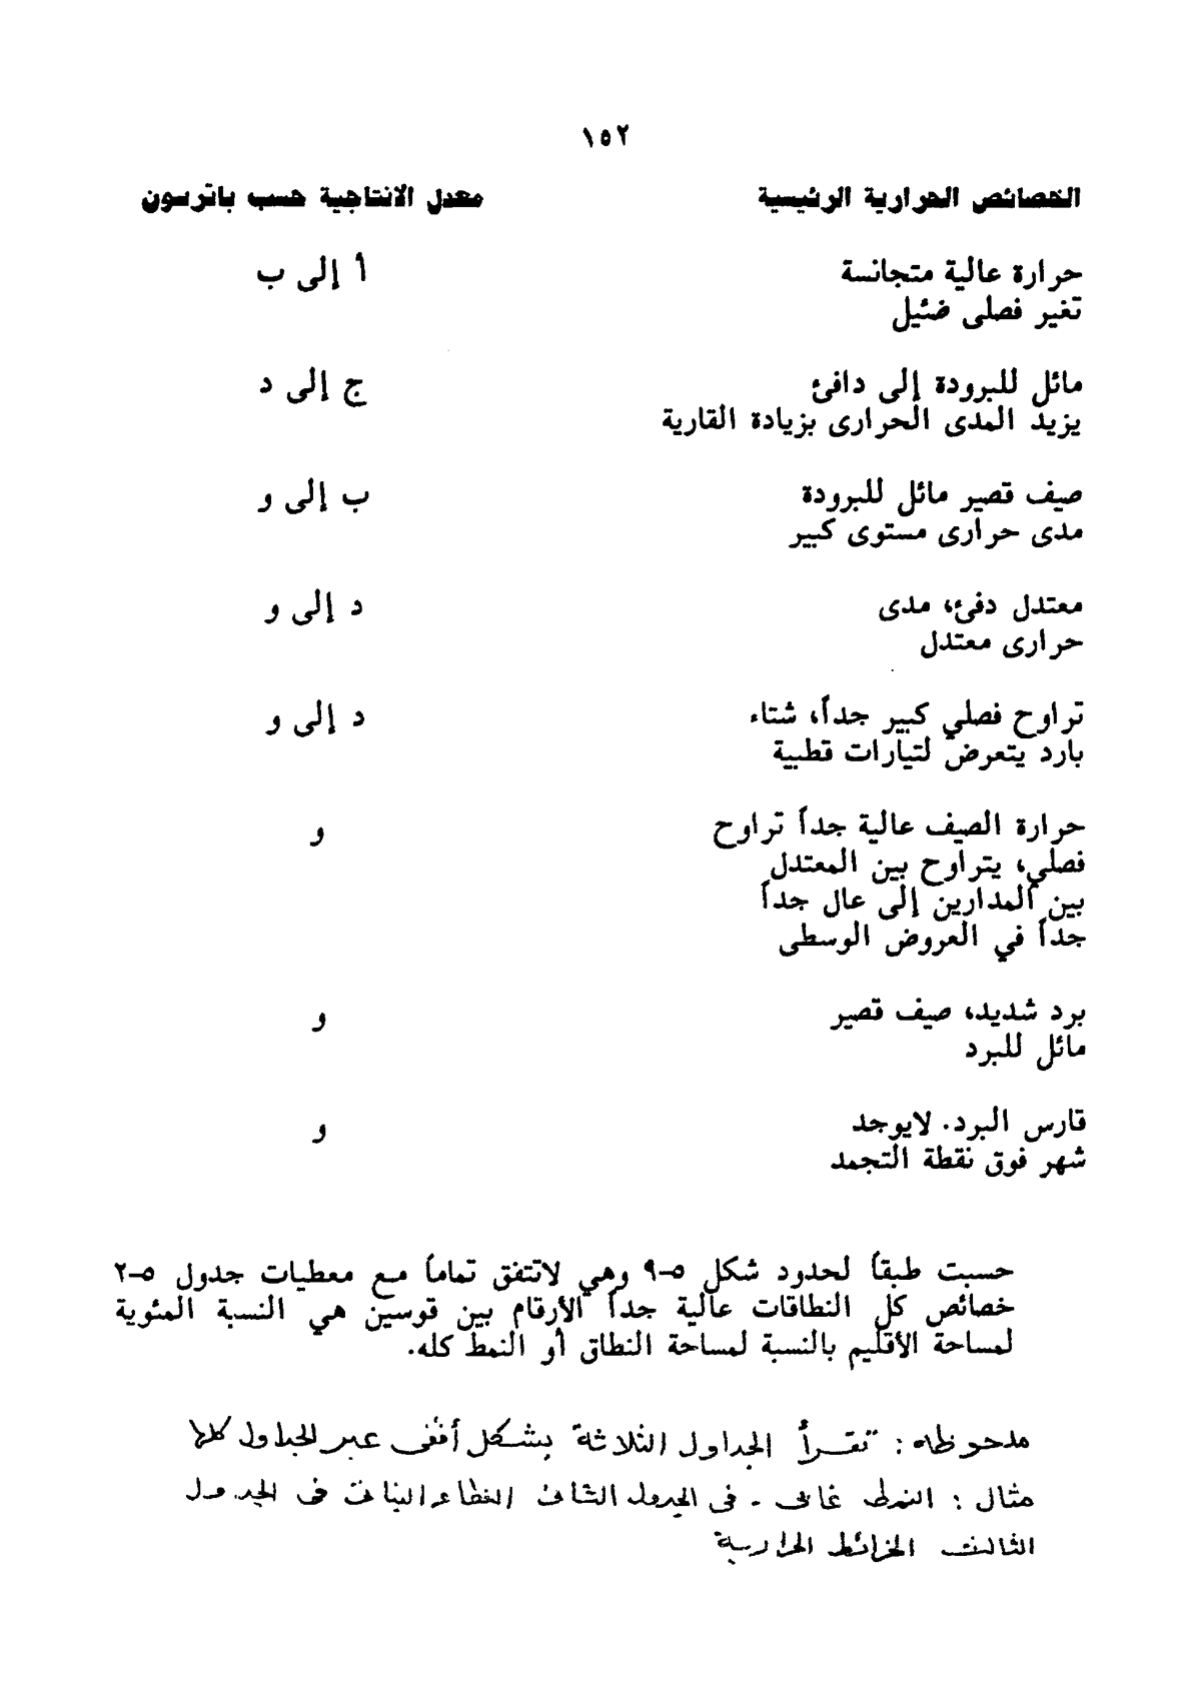 ١٥٢
الخصائص الحرارية الرئيسية معدل الانتاجية حسب باترسون
حرارة عالية متجانسة أ إلى ب
تغير فصلى ضئيل
مائل للبرودة إلى دافئ ج إلى د
يزيد المدى الحرارى بزيادة القارية
صيف قصير مائل للبرودة ب إلى و
مدى حرارى مستوى كبير
معتدل دفئ، مدى د إلى و
حرارى معتدل
تراوح فصلي كبير جداً، شتاء د إلى و
بارد يتعرض لتيارات قطبية
حرارة الصيف عالية جداً تراوح و
فصلي، يتراوح بين المعتدل
بين المدارين إلى عال جداً
جداً في العروض الوسطى
برد شديد، صيف قصير و
مائل للبرد
قارس البرد. لايوجد و
شهر فوق نقطة التجمد
حسبت طبقاً لحدود شكل ٥-٩ وهي لاتتفق تماماً مع معطيات جدول ٥-٢
خصائص كل النطاقات عالية جداً الأرقام بين قوسين هي النسبة المئوية
لمساحة الأقليم بالنسبة لمساحة النطاق أو النمط كله.
ملحوظه : تقرأ الجداول الثلاثة بشكل أفقى عبر الجداول كلها
مثال : النمط غابى - فى الجدول الثانى الغطاء النباتى فى الجدول
الثالث الخرائط الحرارية